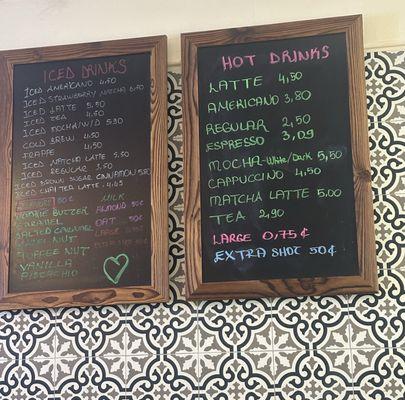 ICED DRINKS
ICED AMERICANO 4.50
ICED STRAWBERRY MATCHA 6.50
ICED LATTE 5.50
ICED TEA 4.50
ICED MOCHA/W/D 5.90
COLD BREW 4.50
FRAPPE 4.50
ICED MATCHA LATTE 5.50
ICED REGULAR 3.50
ICED BROWN SUGAR CINNAMON 5.80
ICED CHAI TEA LATTE 4.45
50¢ MILK
BUTTER ALMOND 50¢
CARAMEL OAT 50¢
SALTED CARAMEL LARGE
NUT EXTRA SHOT
TOFFEE NUT
VANILLA
PISTACHIO
HOT DRINKS
LATTE 4,50
AMERICANO 3,80
REGULAR 2,50
ESPRESSO 3,09
MOCHA-White/Dark 5,50
CAPPUCCINO 4,50
MATCHA LATTE 5,00
TEA 2,90
LARGE 0,75¢
EXTRA SHOT 50¢